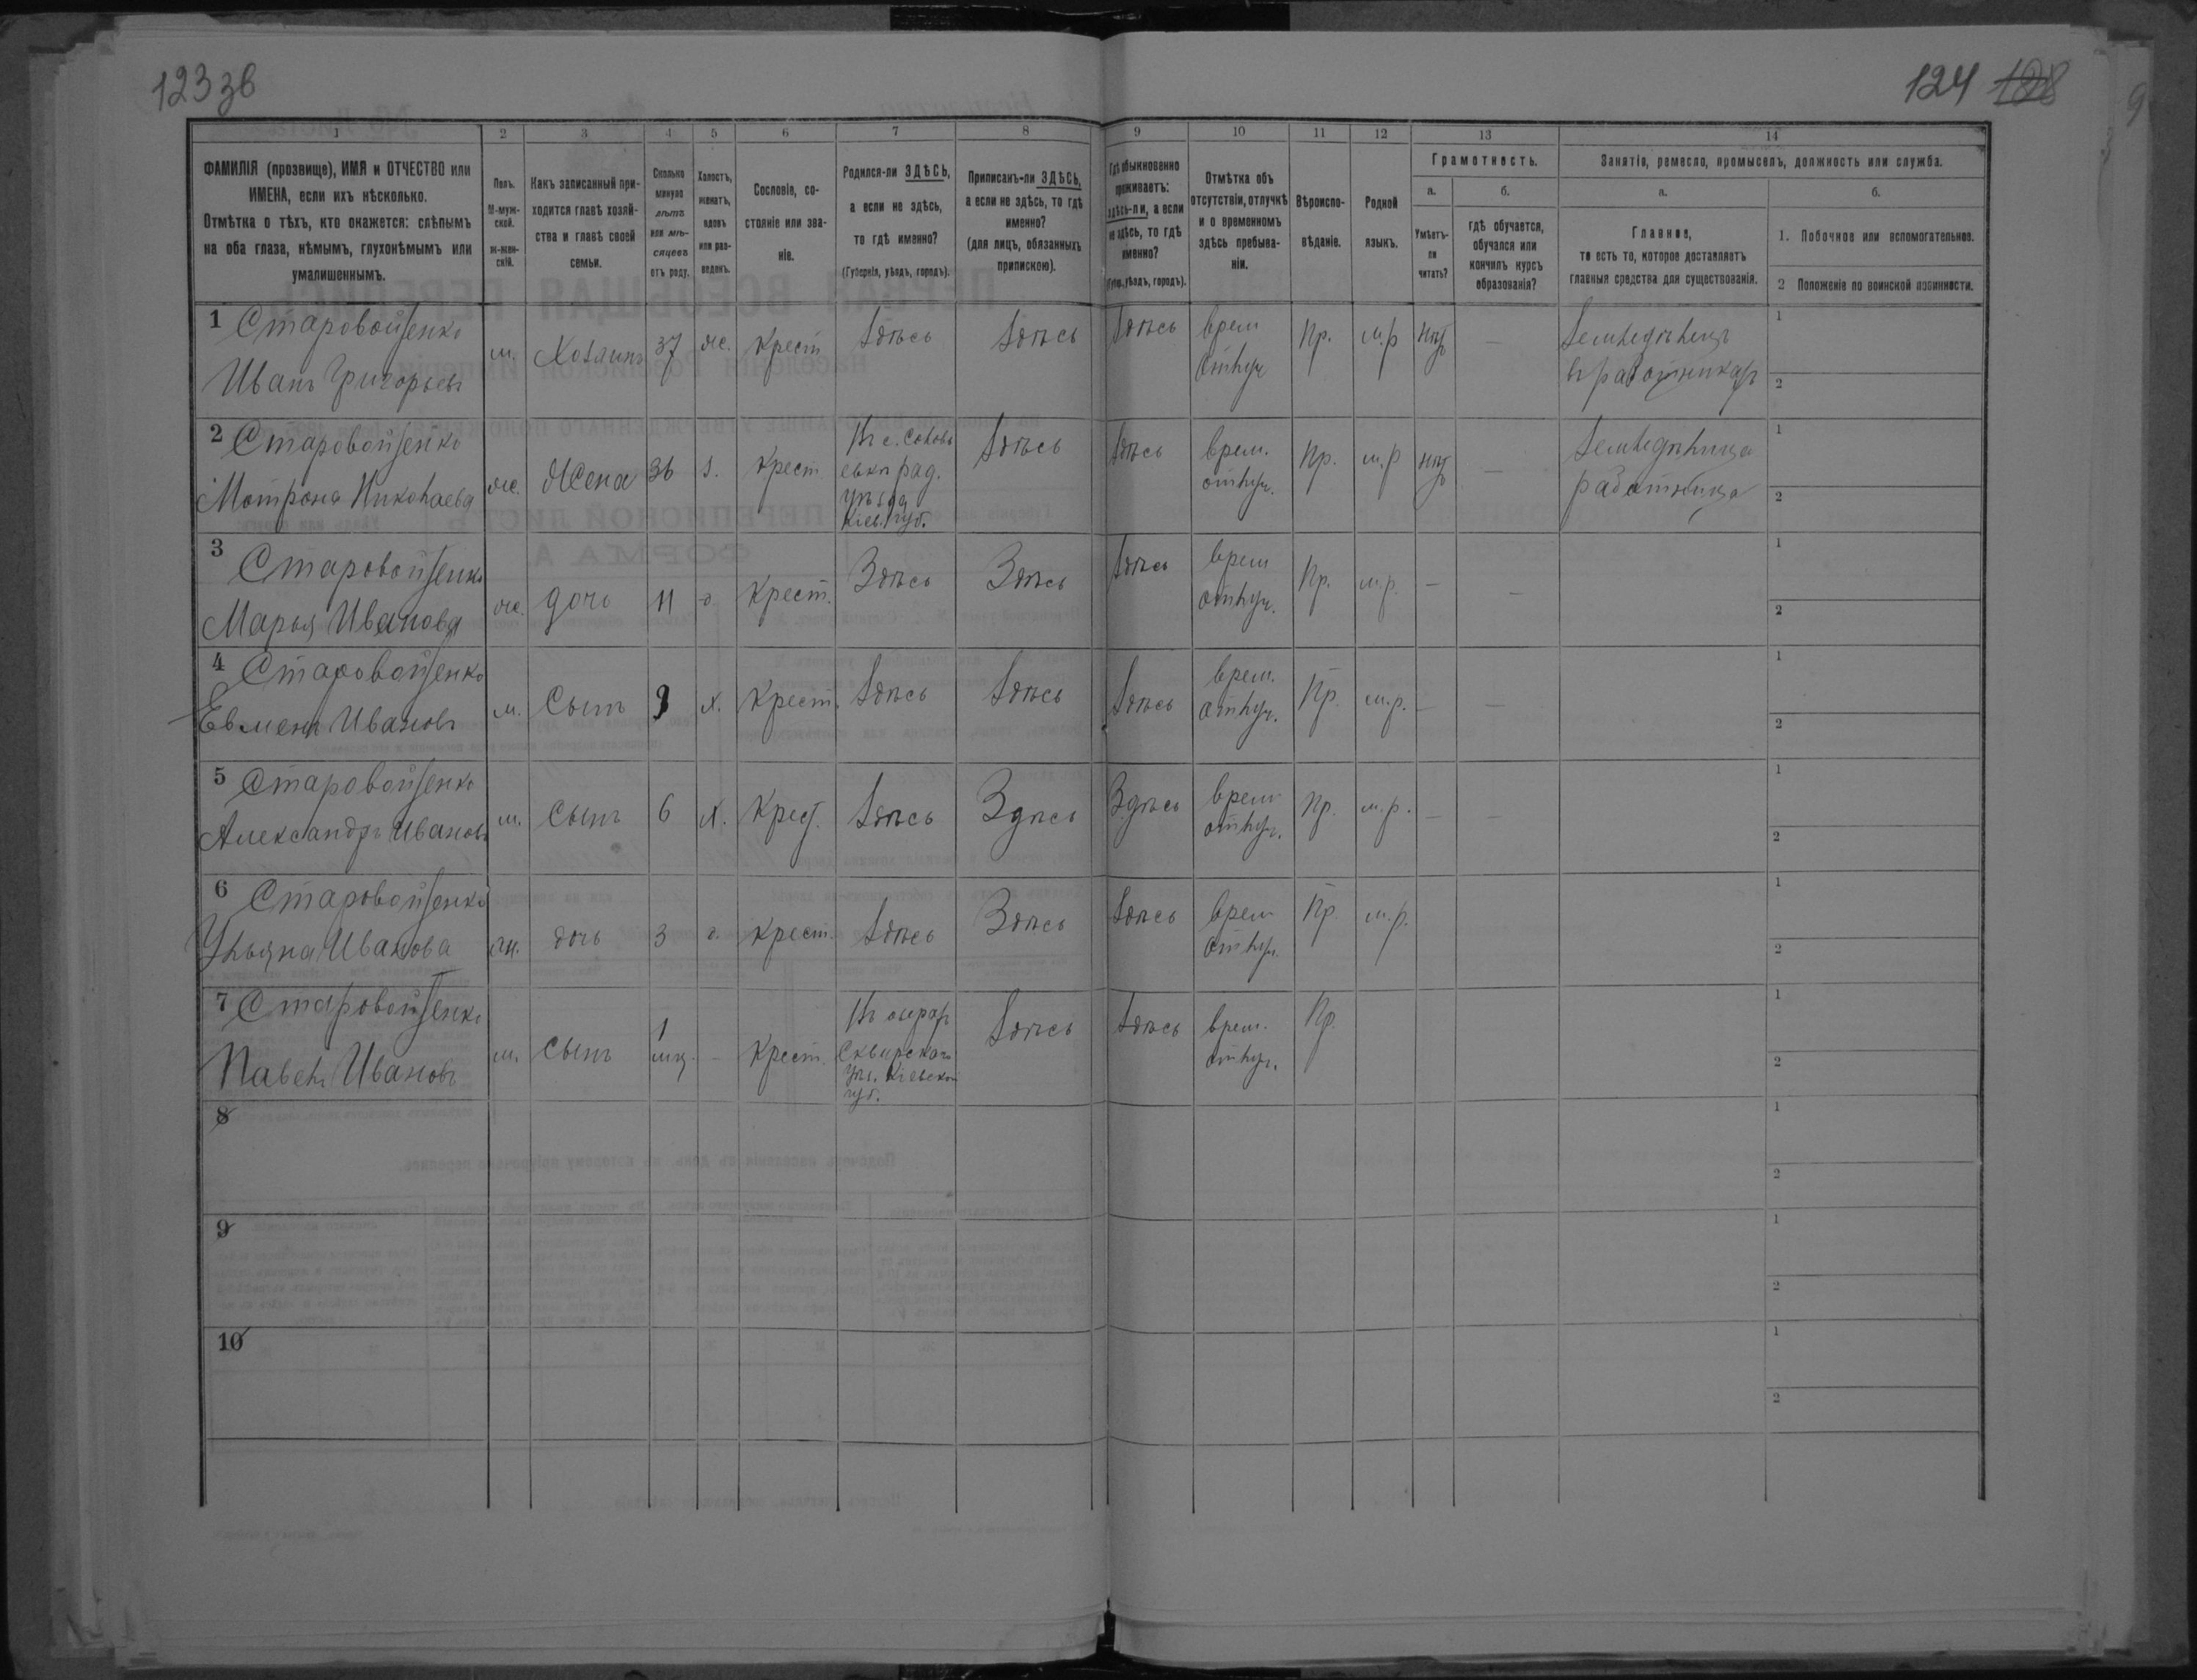 123 зв
124 128
1 2 3 4 5 6 7 8 9 10 11 12 13 14
ФАМИЛІЯ (прозвище), ИМЯ и ОТЧЕСТВО или
ИМЕНА, если ихъ нѣсколько.
Отмѣтка о тѣхъ, кто окажется: слѣпымъ
на оба глаза, нѣмымъ, глухонѣмымъ или
умалишеннымъ.
Полъ.
М-муж-
ской.
ж-жен-
скій.
Какъ записанный при-
ходится главѣ хозяй-
ства и главѣ своей
семьи.
Сколько
минуло
лѣтъ
или мѣ-
сяцевъ
отъ роду.
Холостъ,
женатъ,
вдовъ
или раз-
веденъ.
Сословіе, со-
стояніе или зва-
ніе.
Родился-ли ЗДѢСЬ,
а если не здѣсь,
то гдѣ именно?
(Губернія, уѣздъ, городъ).
Приписанъ-ли ЗДѢСЬ,
а если не здѣсь, то гдѣ
именно?
(для лицъ, обязанныхъ
припискою).
Гдѣ обыкновенно
проживаетъ:
здѣсь-ли, а если
не здѣсь, то гдѣ
именно?
(Губер., уѣздъ, городъ).
Отмѣтка объ
отсутствіи, отлучкѣ
и о временномъ
здѣсь пребыва-
ніи.
Вѣроиспо-
вѣданіе.
Родной
языкъ.
Грамотность.
а.
Умѣетъ-
ли
читать?
б.
гдѣ обучается,
обучался или
кончилъ курсъ
образованія?
Занятіе, ремесло, промыселъ, должность или служба.
а.
Главное,
то есть то, которое доставляетъ
главныя средства для существованія.
б.
1. Побочное или вспомогательное.
2 Положеніе по воинской повинности.
1 Старовойтенко
Иванъ Григорьевъ
м. Хозаинъ 37 ж. Крест Здѣсь Здѣсь Здѣсь врем
отлуч Пр. м.р нѣтъ — Земледѣлецъ
въ работникахъ
1
2
2 Старовойтенко
Мотрона Николаева
ж. Жена 36 з. Крест
Въ с. Соловь
евкѣ рад.
уѣзда
Кіев. губ.
Здѣсь Здѣсь врем.
отлуч. Пр. м.р нѣтъ — Земледѣлица
работница
1
2
3 Старовойтенко
Марья Иванова
ж. дочь 11 д Крест. Здѣсь Здѣсь Здѣсь врем
отлуч. Пр. м.р. — —
1
2
4 Старовойтенко
Евменъ Ивановъ
м. Сынъ 9 х. Крест. Здѣсь Здѣсь Здѣсь врем.
отлуч. Пр. м.р. — —
1
2
5 Старовойтенко
Александръ Ивановъ
м. Сынъ 6 х. Крест. Здѣсь Здѣсь Здѣсь врем
отлуч. Пр. м.р. — —
1
2
6 Старовойтенко
Ульяна Иванова
ж. дочь 3 д. крест. Здѣсь Здѣсь Здѣсь врем
отлуч. Пр. м.р.
1
2
7 Старовойтенко
Павелъ Ивановъ
м. сынъ 1
мц. - Крест.
Сквирскаго
уѣз. Кіевской
губ.
Здѣсь Здѣсь врем.
отлуч. Пр.
1
2
8
1
2
9
1
2
10
1
2